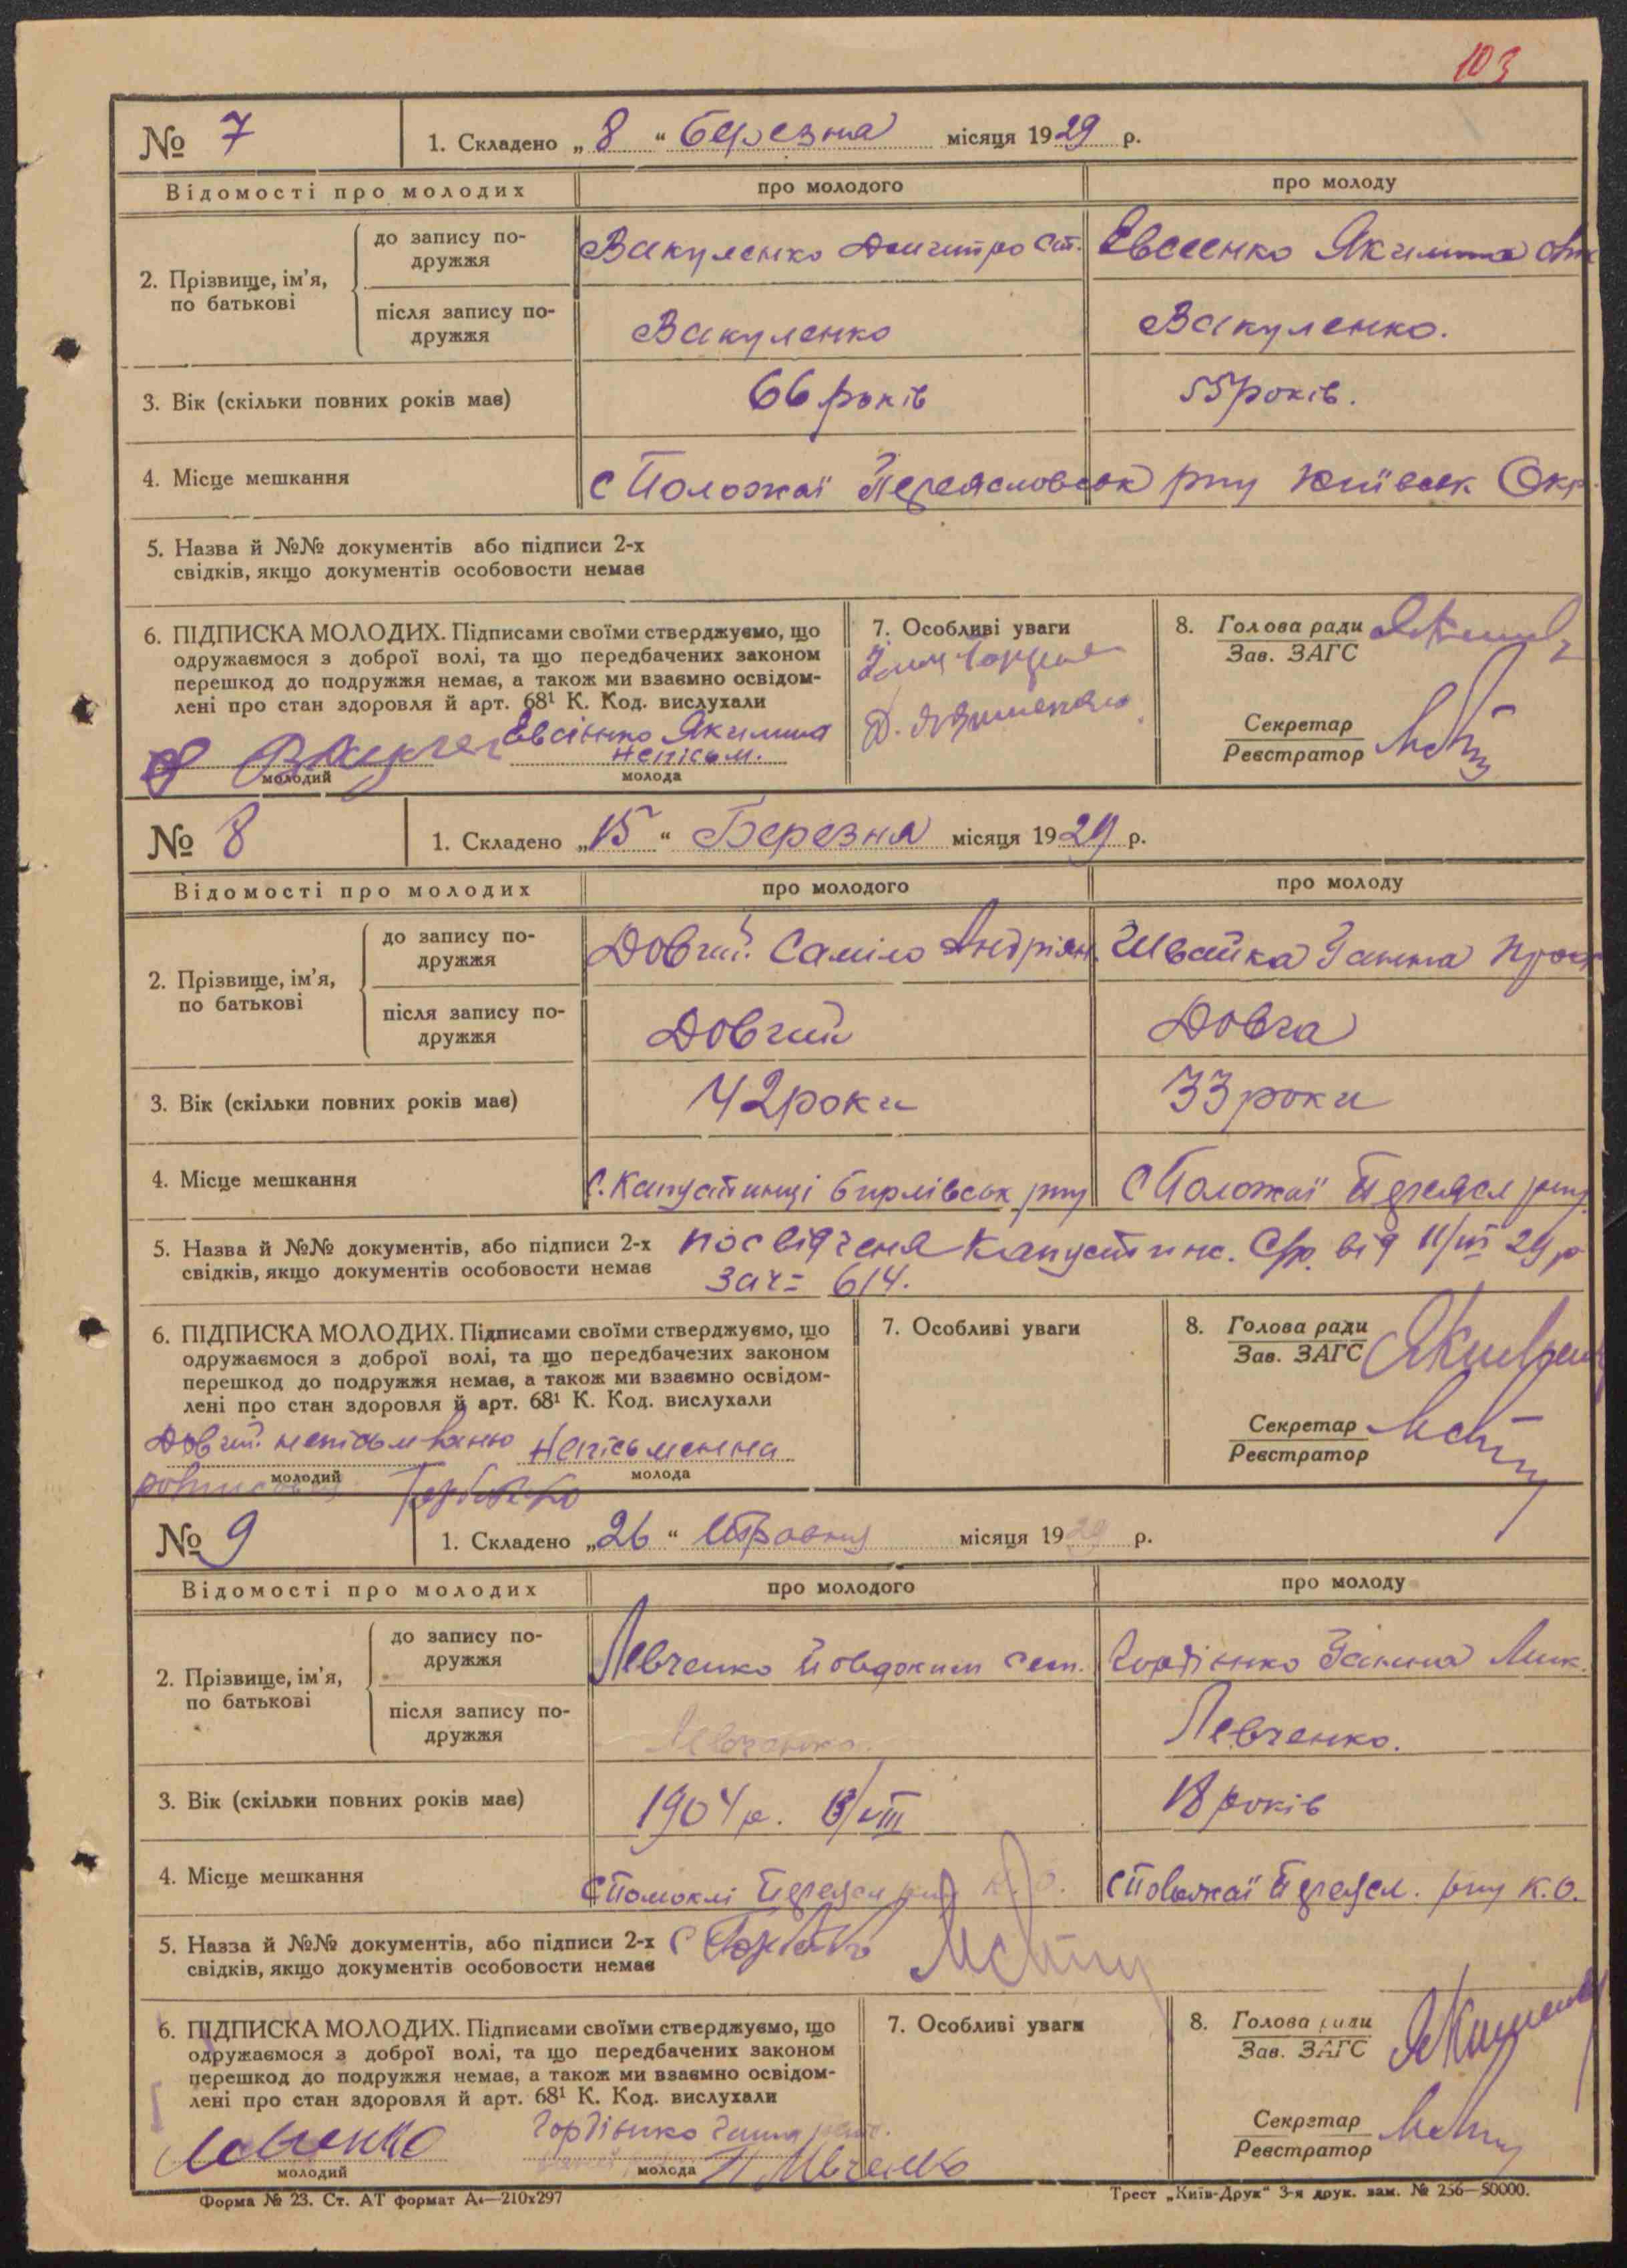 103
№ 7 1. Складено „ 8 “ березна місяця 1929 р.
Відомості про молодих про молодого про молоду
2. Прізвище, ім’я, по батькові
до запису по-дружжя Вакуленко Дмитро Ст. Евсеенко Якилина
після запису по-дружжя Вакуленко Вакуленко.
3. Вік (скільки повних років має) 66 років 55 років.
4. Місце мешкання с Положаї Переясловськ рну Київськ Окр.
5. Назва й №№ документів або підписи 2-х
свідків, якщо документів особовости немає
6. ПІДПИСКА МОЛОДИХ. Підписами своїми стверджуємо, що
одружаємося з доброї волі, та що передбачених законом
перешкод до подружжя немає, а також ми взаємно освідом-
лені про стан здоровля й арт. 68¹ К. Код. вислухали
Евсінко Якилина
непісьм.
молодий молода
7. Особливі уваги
8. Голова ради
Зав. ЗАГС
Секретар
Реєстратор
№ 8 1. Складено „ 15 “ Березня місяця 1929 р.
Відомості про молодих про молодого про молоду
2. Прізвище, ім’я, по батькові
до запису по-дружжя Довгий Саміло Андріян. Швайка Ганна
після запису по-дружжя Довгий Довга
3. Вік (скільки повних років має) 42 роки 33 роки
4. Місце мешкання с. Капустинці Бирлівськ рну с Положаї Переясл рну
5. Назва й №№ документів, або підписи 2-х
свідків, якщо документів особовости немає
посвідченя Капустинс. С/р. від 11/III 29 р
зач= 614.
6. ПІДПИСКА МОЛОДИХ. Підписами своїми стверджуємо, що
одружаємося з доброї волі, та що передбачених законом
перешкод до подружжя немає, а також ми взаємно освідом-
лені про стан здоровля й арт. 68¹ К. Код. вислухали
Довгий Непісьменна
молодий молода
7. Особливі уваги
8. Голова ради
Зав. ЗАГС
Секретар
Реєстратор
№ 9 1. Складено „ 26 “ місяця 1929 р.
Відомості про молодих про молодого про молоду
2. Прізвище, ім’я, по батькові
до запису по-дружжя Левченко Йовдоким Сем. Гордіенко Ганна Мик.
після запису по-дружжя Левченко. Левченко.
3. Вік (скільки повних років має) 1904 р. /VIII 18 років
4. Місце мешкання с Помоклі Переясл рну К.О. с Положаї Переясл. рну К.О.
5. Назва й №№ документів, або підписи 2-х
свідків, якщо документів особовости немає
6. ПІДПИСКА МОЛОДИХ. Підписами своїми стверджуємо, що
одружаємося з доброї волі, та що передбачених законом
перешкод до подружжя немає, а також ми взаємно освідом-
лені про стан здоровля й арт. 68¹ К. Код. вислухали
молодий молода
7. Особливі уваги
8. Голова ради
Зав. ЗАГС
Секретар
Реєстратор
Форма № 23. Ст. АТ формат А₄—210х297 Трест „Київ-Друк“ 3-я друк. зам. № 256—50000.